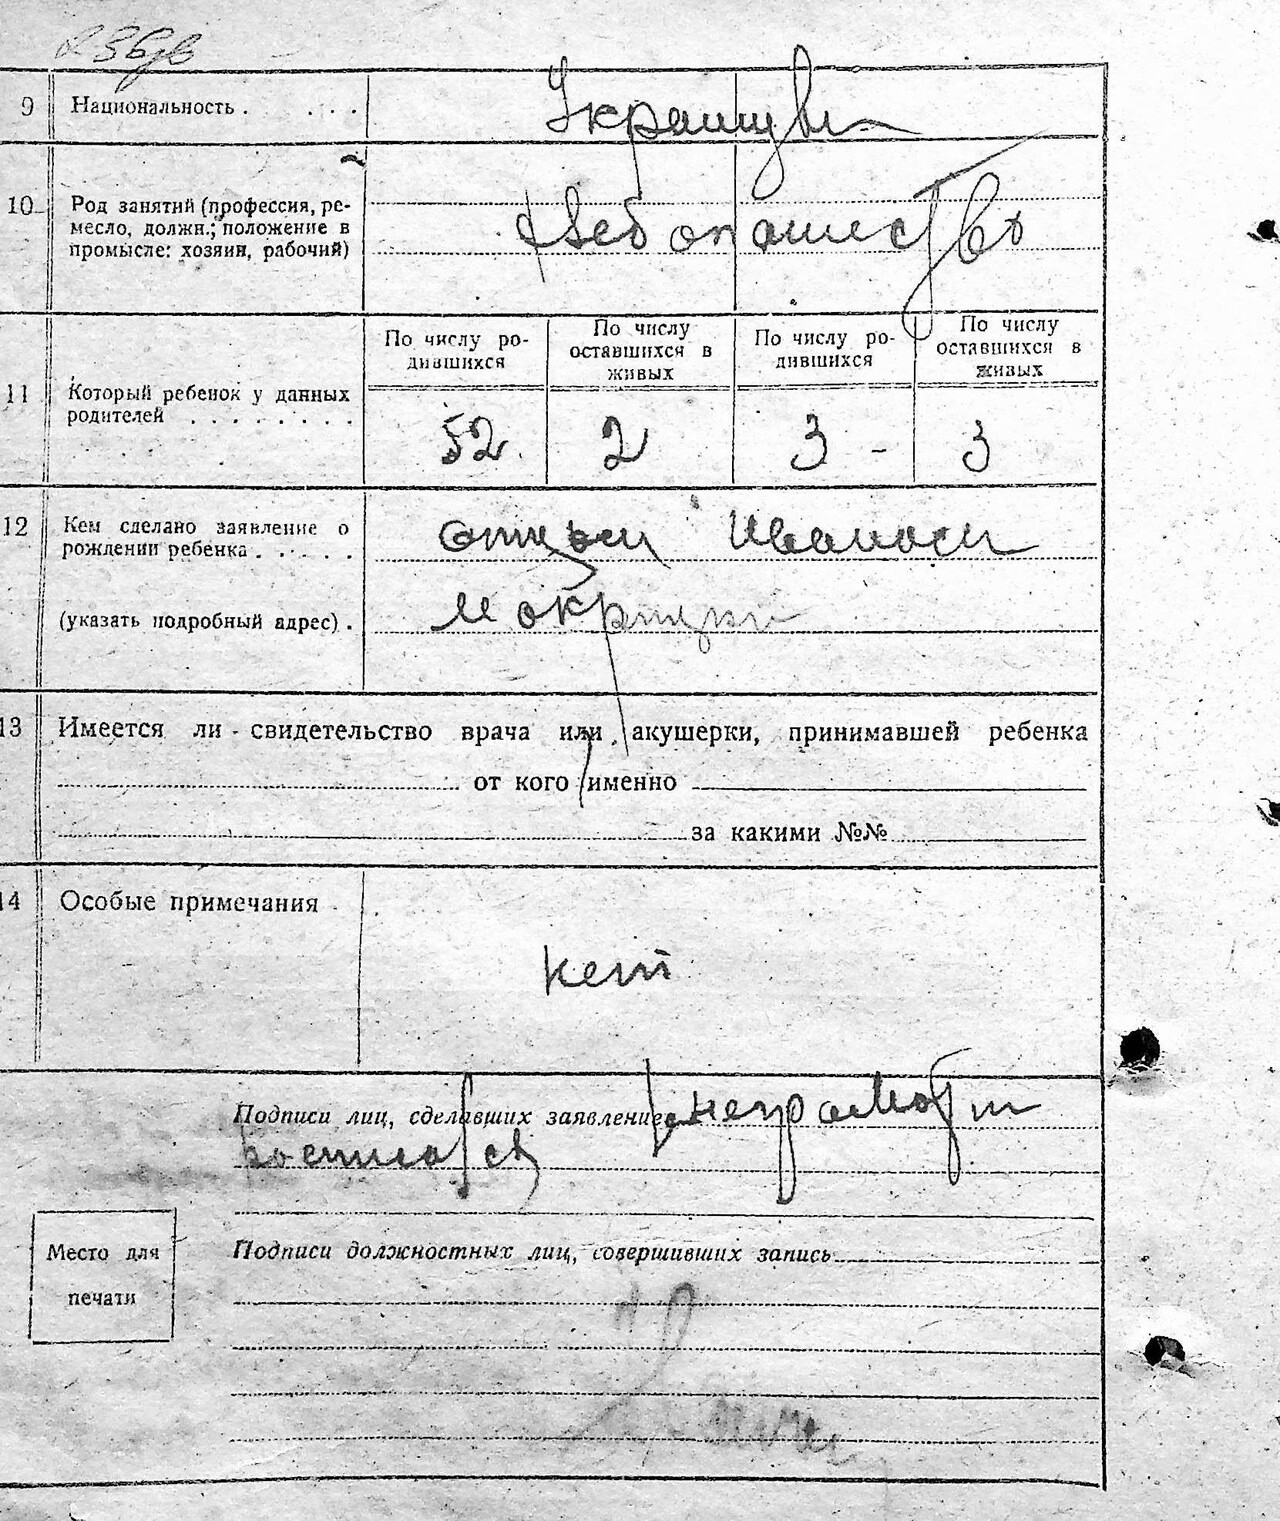 9 Национальность . . . . Украинцы
10 Род занятий (профессия, ре-
месло, должн.; положение в
промысле: хозяин, рабочий)
Хлебопашество
По числу ро-
дившихся
По числу
оставшихся в
живых
По числу ро-
дившихся
По числу
оставшихся в
живых
11 Который ребенок у данных
родителей . . . . . . . .
2 3 - 3
12 Кем сделано заявление о
рождении ребенка . . . . .
отцом Иваном
(указать подробный адрес) .
13 Имеется ли свидетельство врача или акушерки, принимавшей ребенка
от кого именно
за какими №№
14 Особые примечания
нет
Подписи лиц, сделавших заявление неграмотн
Место для
печати
Подписи должностных лиц, совершивших запись